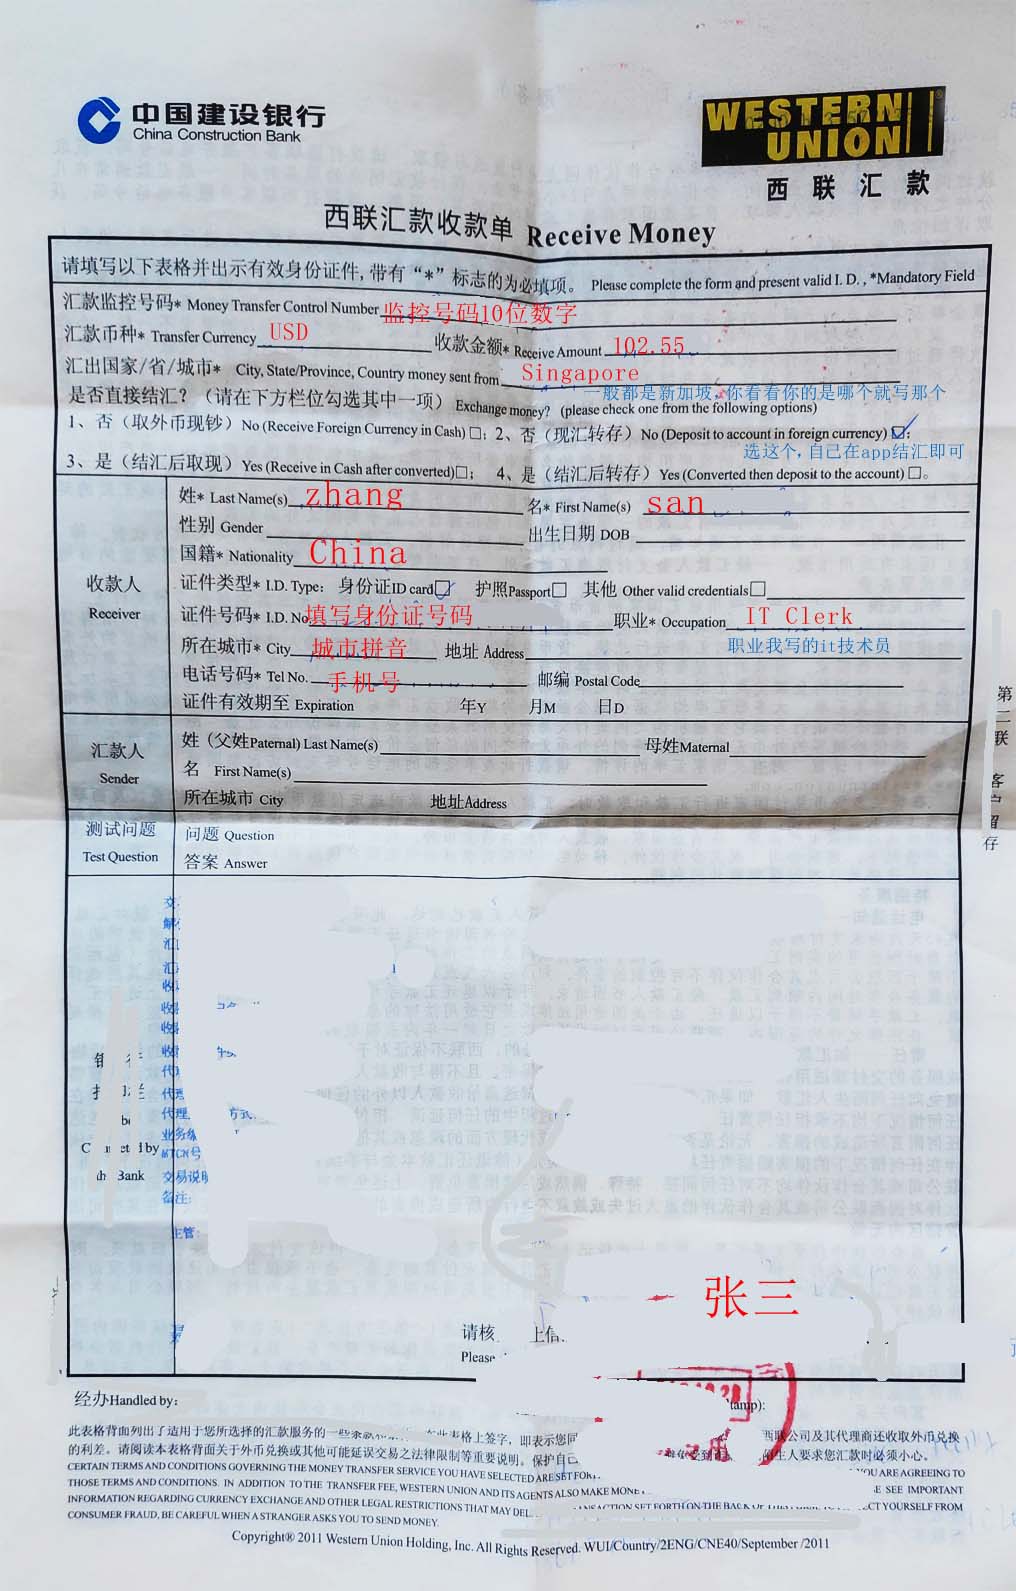 中国建设银行
China Construction Bank
WESTERN
UNION
西联汇款
西联汇款收款单 Receive Money
请填写以下表格并出示有效身份证件,带有“*”标志的为必填项。 Please complete the form and present valid I. D. , *Mandatory Field
汇款监控号码* Money Transfer Control Number 监控号码10位数字
汇款币种* Transfer Currency USD 收款金额* Receive Amount 102.55
汇出国家/省/城市* City, State/Province, Country money sent from Singapore
一般都是新加坡,你看看你的是哪个就写那个
是否直接结汇? (请在下方栏位勾选其中一项) Exchange money? (please check one from the following options)
1、否(取外币现钞) No (Receive Foreign Currency in Cash) □; 2、否(现汇转存) No (Deposit to account in foreign currency) ☑;
选这个,自己在app结汇即可
3、是(结汇后取现) Yes (Receive in Cash after converted)□; 4、是(结汇后转存) Yes (Converted then deposit to the account) □。
收款人
Receiver
姓* Last Name(s) zhang 名* First Name(s) san
性别 Gender 出生日期 DOB
国籍* Nationality China
证件类型* I.D. Type: 身份证ID card☑ 护照Passport□ 其他 Other valid credentials□
证件号码* I.D. No 填写身份证号码 职业* Occupation IT Clerk
职业我写的it技术员
所在城市* City 城市拼音 地址 Address
电话号码* Tel No. 手机号 邮编 Postal Code
证件有效期至 Expiration 年Y 月M 日D
汇款人
Sender
姓 (父姓Paternal) Last Name(s) 母姓Maternal
名 First Name(s)
所在城市 City 地址Address
测试问题
Test Question
问题 Question
答案 Answer
第二联 客户留存
代理 方式
MTCN号
交易说明
备注:
主管:
by
Bank
张三
请核 上信
Please
经办Handled by:
此表格背面列出了适用于您所选择的汇款服务的一些条款和 在此表格上签字，即表示您同 西联公司及其代理商还收取外币兑换
的利差。请阅读本表格背面关于外币兑换或其他可能延误交易之法律限制等重要说明。保护自己 生人要求您汇款时必须小心。
CERTAIN TERMS AND CONDITIONS GOVERNING THE MONEY TRANSFER SERVICE YOU HAVE SELECTED ARE SET FORT YOU ARE AGREEING TO
THOSE TERMS AND CONDITIONS. IN ADDITION TO THE TRANSFER FEE, WESTERN UNION AND ITS AGENTS ALSO MAKE MONE SEE IMPORTANT
INFORMATION REGARDING CURRENCY EXCHANGE AND OTHER LEGAL RESTRICTIONS THAT MAY DEL SET FORTH ON THE BACK OF YOURSELF FROM
CONSUMER FRAUD, BE CAREFUL WHEN A STRANGER ASKS YOU TO SEND MONEY.
Copyright® 2011 Western Union Holding, Inc. All Rights Reserved. WUI/Country/2ENG/CNE40/September /2011